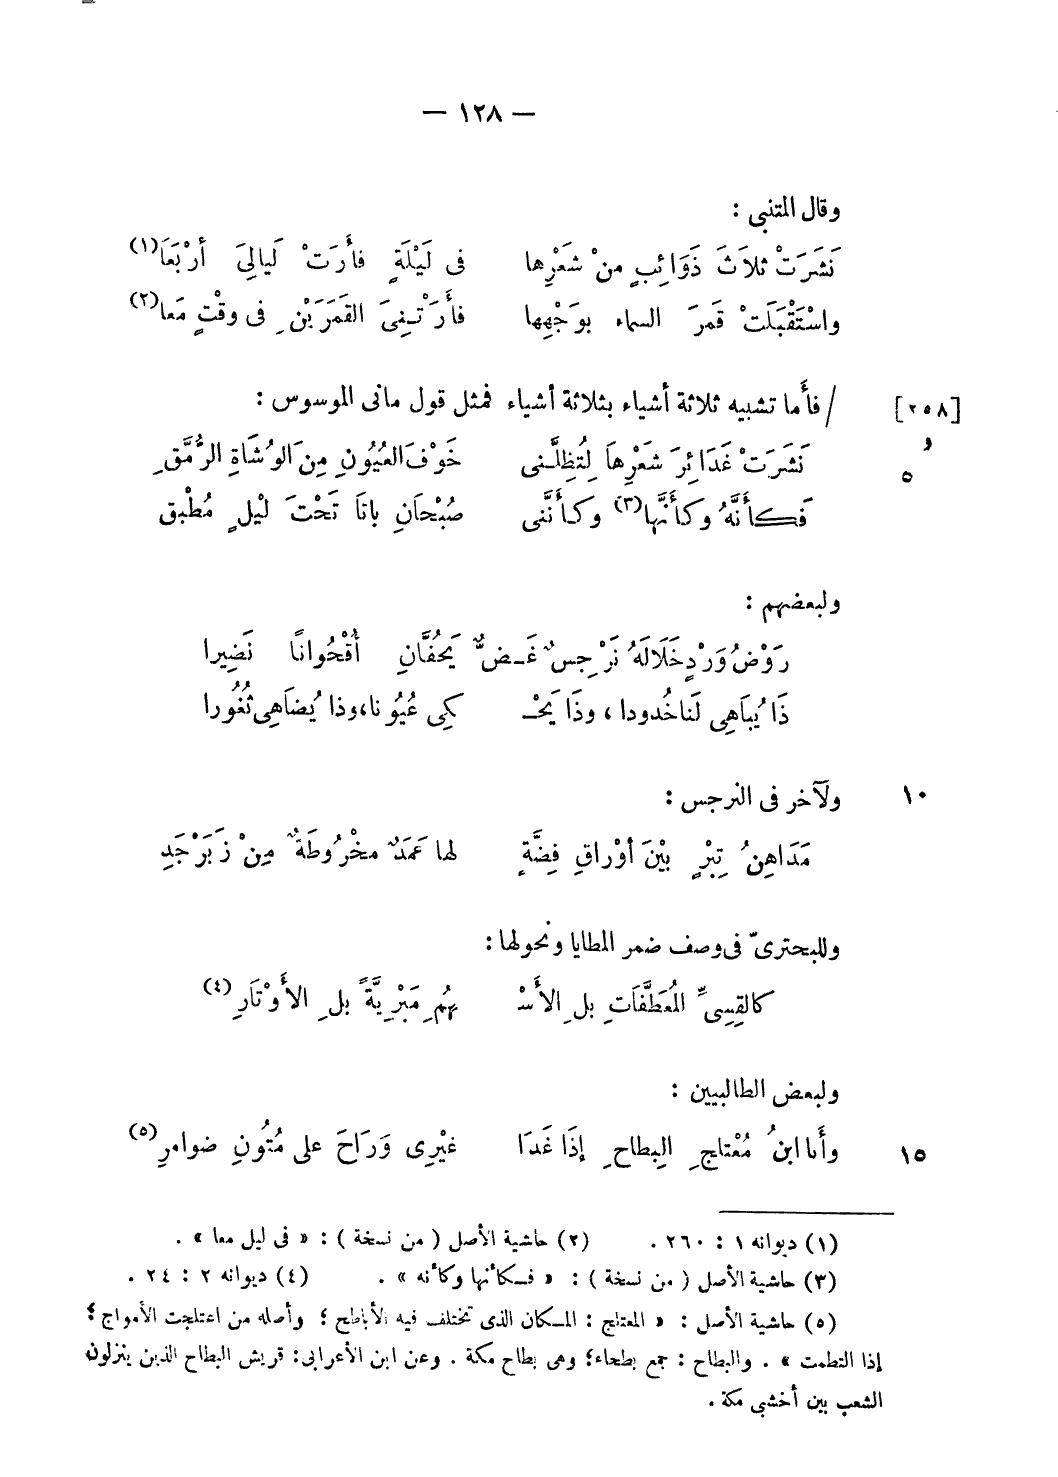 — ١٢٨ —
وقال المتنبى :
نَشَرَتْ ثلاَثَ ذَوَائِبٍ منْ شعَرِها فى لَيْلَةٍ فأَرَتْ لَيالِىَ أرْبَعَا(١)
واسْتَقْبَلَتْ قمرَ السماء بوَجْهِها فأَرَتْنِىَ القَمَرَيْنِ فى وقْتٍ مَعا(٢)
[٢٥٨] / فأَما تشبيه ثلاثة أشياء بثلاثة أشياء فمثل قول مانى الموسوس :
و
نَشَرَتْ غَدَائِرَ شَعْرِهاَ لِتُظِلَّنى خَوْفَ العُيُونِ مِنَ الوُشَاةِ الرُّمَّقِ
٥
فَكأَنَّهُ وكَأَنَّها(٣) وكَأَنَّنى صُبْحَانِ باتَا تَحْتَ لَيْلٍ مُطْبِقِ
ولبعضهم :
رَوْضُ وَرْدٍ خَلَالَهُ نَرْجِسٌ غَـضٌّ يَحُفَّانِ أُقْحُوانًا نَضِيرا
ذَا يُباَهِى لَنا خُدودا ، وذَا يَحْـ كِى عُيُونا، وذا يُضاَهِى ثُغُورا
١٠ ولآخر فى النرجس :
مَدَاهِنُ تِبْرٍ بيْنَ أوْراقِ فِضَّةٍ لها عَمَدٌ مخْرُوطَةٌ مِنْ زَبَرْجَدِ
وللبحترىّ فى وصف ضمر المطايا ونحولها :
كالقِسِىِّ المُعَطَّفَاتِ بل الأَسْـ ـهُمِ مَبْرِيَّةً بلِ الأَوْتَارِ(٤)
ولبعض الطالبيين :
وأَنا ابنُ مُعْتلجِ البِطاحِ إذَا غَدَا غيْرِى وَرَاحَ على مُتُونِ ضوامرِ(٥)
١٥
(١) ديوانه ١ : ٢٦٠ . (٢) حاشية الأصل ( من نسخة ) : « فى ليل معا » .
(٣) حاشية الأصل ( من نسخة ) : « فـكأنها وكأنه » . (٤) ديوانه ٢ : ٢٤ .
(٥) حاشية الأصل : « المعتلج : المـكان الذى تختلف فيه الأباطح ؛ وأصله من اعتلجت الأمواج ؛
إذا التطمت » . والبطاح : جمع بطحاء؛ وهى بطاح مكة . وعن ابن الأعرابى: قريش البطاح الذين ينزلون
الشعب بين أخشبى مكة .